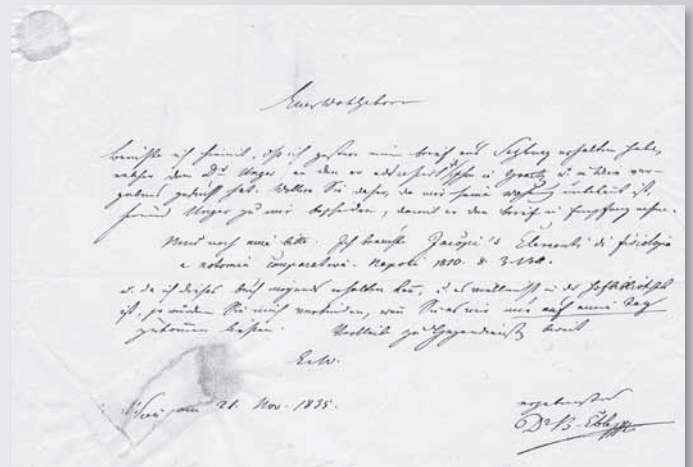 Euer Wohlgeboren
berichte ich hiemit, daß ich gestern einen Brief aus Salzburg erhalten habe,
welcher den Dr Unger, an den er adressirt ist, schon in Gratz u. in Wien ver-
gebens gesucht hat. Wollen Sie daher, da mir seine Wohnung unbekannt ist,
Freund Unger zu mir bescheiden, damit er den Brief in Empfang nehme.
Und noch eine Bitte. Ich brauche Jacopi's Elementi di fisiologia
e notomia comparativa. Napoli 1810. 8. 3 Vol.
u. da ich dieses Buch nirgends erhalten kann, u. es vielleicht in der Hofbibliothek
ist, so würden Sie mich verbinden, wenn Sie es mir nur auf einen Tag
zukommen lassen. Verbleibe zu Gegendienst bereit
Ew.
Wien am 21. Nov. 1835.
ergebenster
Dr B. Eble